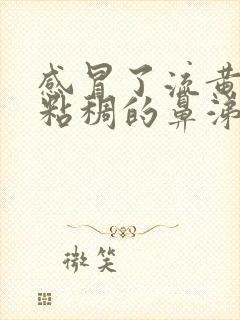 感冒了流黄
粘稠的鼻涕
微笑